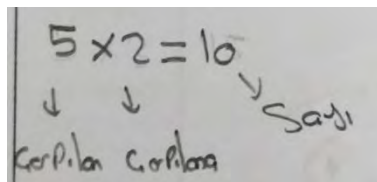 5 x 2 = 10
↓ ↓ ↘ Sayı
Çarpılan Çarpılana